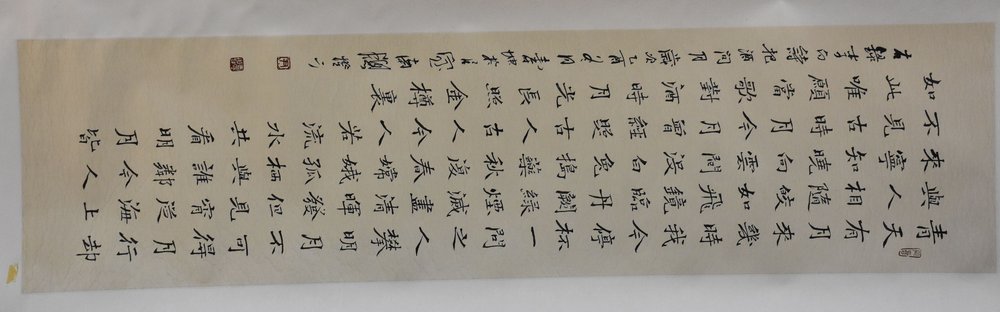 青天有月來幾時我今停杯一問之人攀明月不可得月行却
與人相隨皎如飛鏡臨丹闕綠煙滅盡清暉發但見宵從海上
來寧知曉向雲間没白兔搗藥秋復春嫦娥孤栖與誰鄰今人
不見古時月今月曾經照古人古人今人若流水共看明月皆
如此唯願當歌對酒時月光長照金樽裏
右錄李白詩把酒問月歲次乙酉